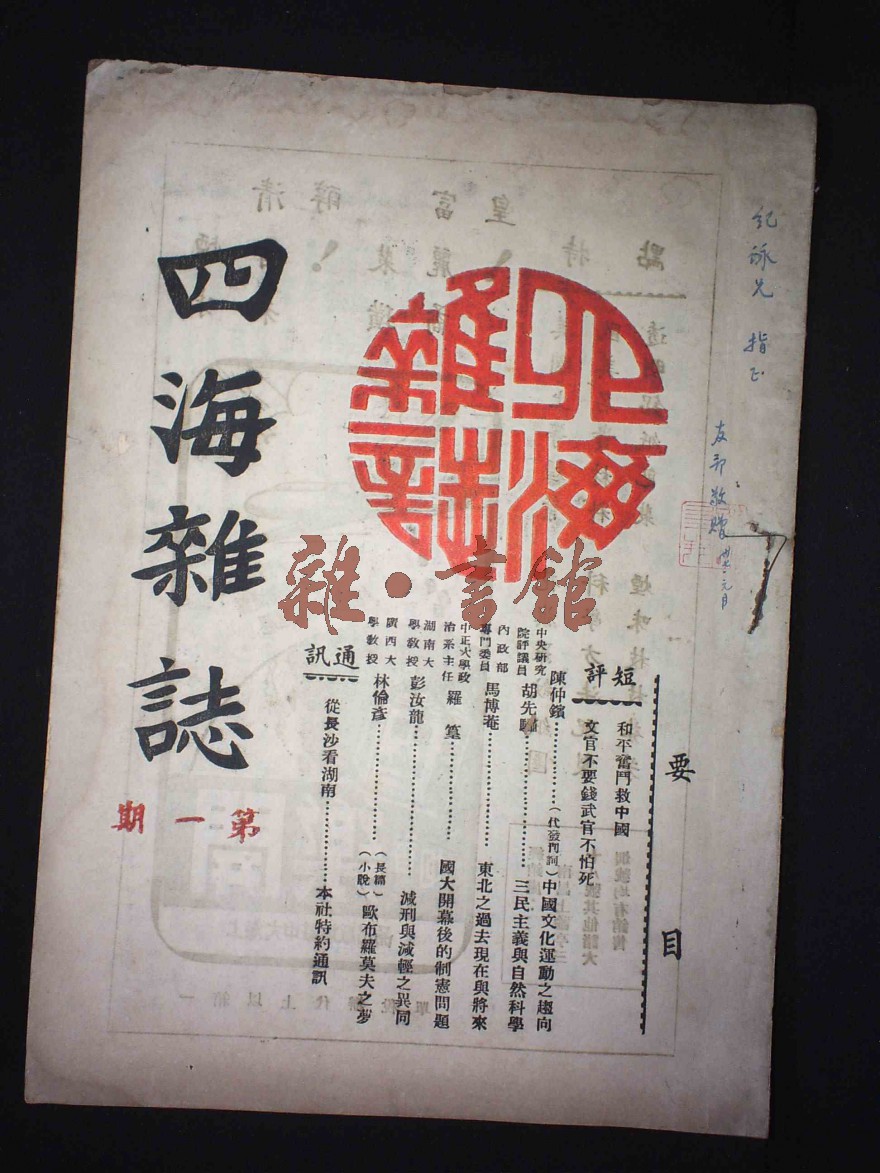 四海雜誌
第一期
四海雜誌
要目
短評
和平奮鬥救中國
文官不要錢武官不怕死
陳仲鑌…………(代發刊詞)中國文化運動之趨向
中央研究院評議員 胡先驌…………三民主義與自然科學
內政部專門委員 馬博菴…………東北之過去現在與將來
中正大學政治系主任 羅篁…………國大開幕後的制憲問題
湖南大學教授 彭汝龍…………減刑與減輕之異同
廣西大學教授 林倫彥…………(長篇小說)歐布羅莫夫之夢
通訊
從長沙看湖南…………本社特約通訊
紀詠兄 指正
友邦敬贈 元月
雜·書館